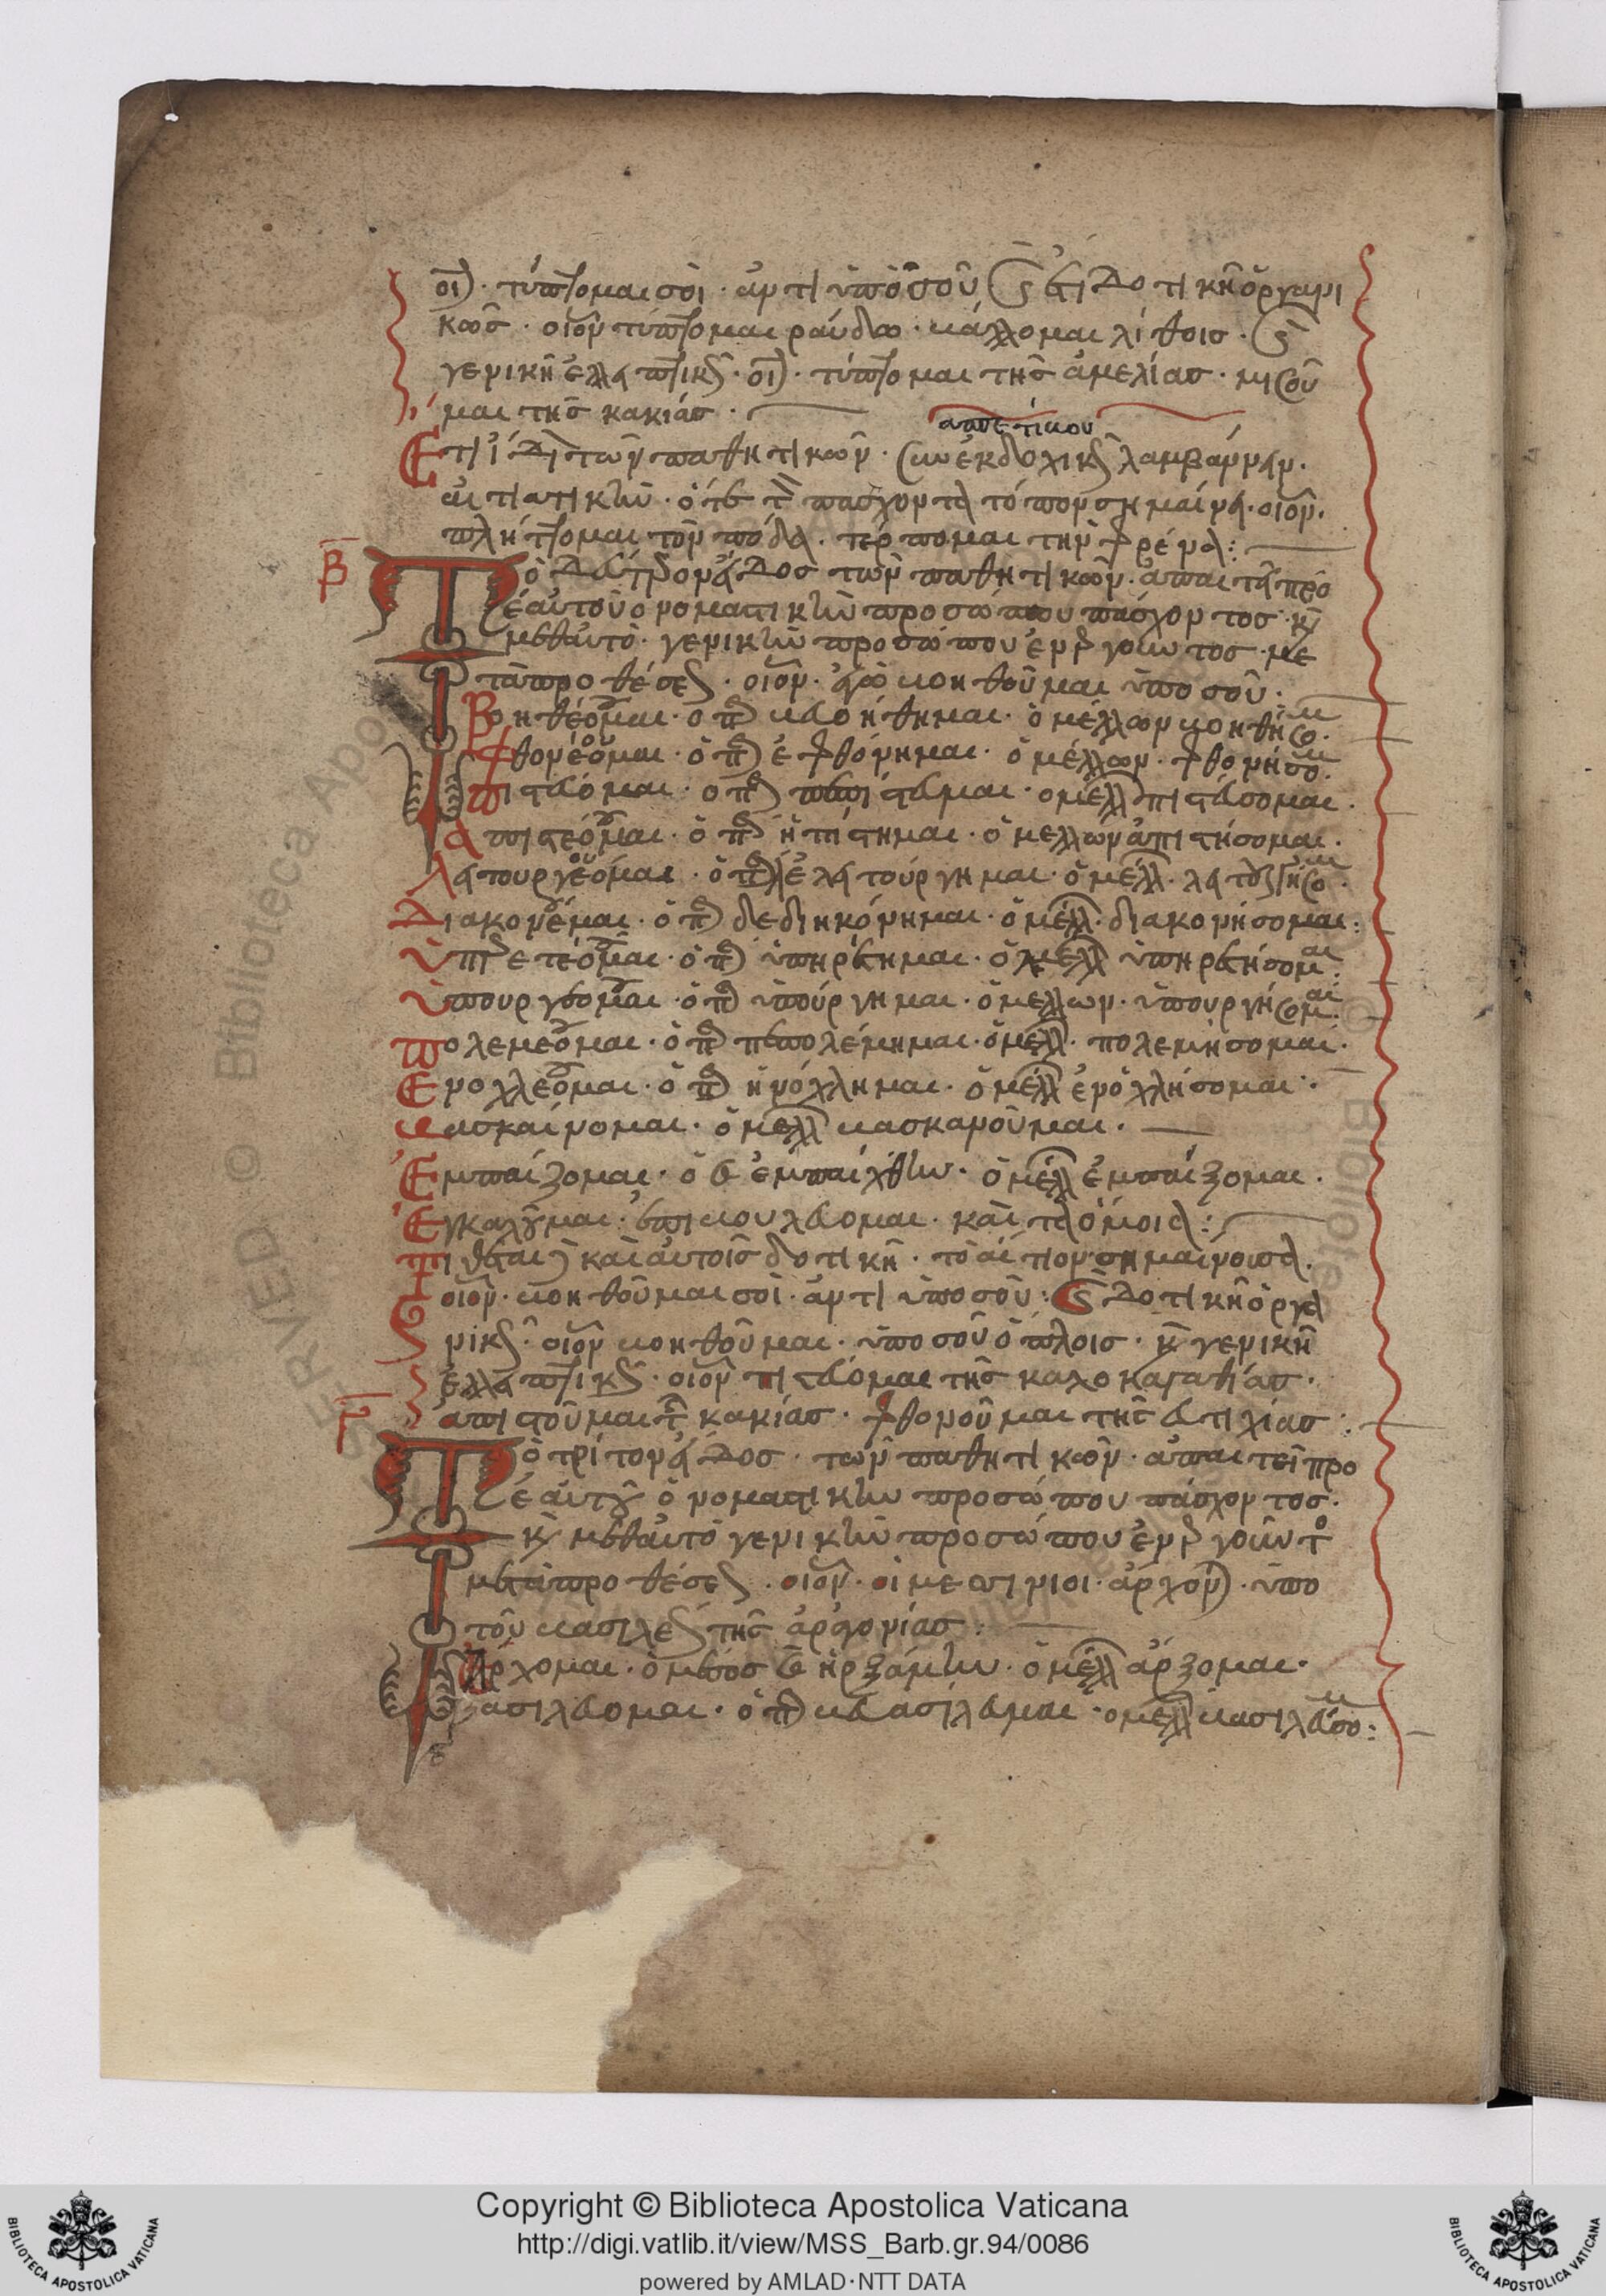 οἷ. τύπτομαι σοὶ. ἀντὶ ὑπὸ σοῦ. ἔτι δοτικῆ ὀργανι
κῶς. οἷον τύπτομαι ράβδω. βάλλομαι λίθοις.
γενικῆ ἐλλειπτικῶς. οἷ. τύπτομαι τῆς ἀμελίας. μισοῦ
μαι τῆς κακίας.
Ἔτι τῶν παθητικῶν. συνεκδοχικῶς λαμβάνουν.
αἰτιατικὴν. πάσχοντα τόπον σημαίνει. οἷον.
πλήττομαι τὸν πόδα. τέρπομαι τὴν φρένα:
Β
Τὸ δεύτερον εἶδος τῶν παθητικῶν. ἀπαιτεῖ πρὸ
ἑαυτοῦ ὀνοματικὴν προσώπου πάσχοντος. καὶ
μεθαυτὸ. γενικὴν προσώπου ἐνεργοῦντος. με
τὰ προθέσεως. οἷον. ἐγὼ βοηθοῦμαι ὑπο σοῦ.
Βοηθέομαι. ὁ βεβοήθημαι. ὁ μέλλων βοηθήσο
Φθονέομαι. ὁ ἐφθόνημαι. ὁ μέλλων. φθονήσο
πιστεύομαι. ὁ πεπίστευμαι. ὁ μέλλ πιστεύσομαι.
Ἀπιστέομαι. ὁ ἠπίστημαι. ὁ μέλλων ἀπιστήσομαι.
Λειτουργέομαι. ὁ ἐλειτούργημαι. ὁ μέλλ.
Διακονέομαι. ὁ δεδιηκόνημαι. ὁ μέλλ. διακονήσομαι:
Ὑπηρετέομαι. ὁ ὑπηρέτημαι. ὁ μέλλ ὑπηρετήσομαι:
Ὑπουργέομαι. ὁ ὑπούργημαι. ὁ μέλλων. ὑπουργήσομαι.
πολεμέομαι. ὁ πεπολέμημαι. ὁ μέλλ. πολεμήσομαι.
Ἐνοχλέομαι. ὁ ἠνόχλημαι. ὁ μέλλ ἐνοχλήσομαι.
βασκαίνομαι. ὁ μέλλ βασκανοῦμαι.
Ἐμπαίζομαι. ὁ ἐμπαίχθην. ὁ μέλλ ἐμπαίξομαι.
Ἐγκαλοῦμαι. ἐπιβουλεύομαι. καὶ τὰ ὅμοια:
καὶ αὐτοῖς δοτικῆ. τὸ αἴτιον σημαίνουσα.
οἷον. βοηθοῦμαι σοὶ. ἀντὶ ὑπο σοῦ: δοτικῆ ὀργα
νικῶς. οἷον βοηθοῦμαι. ὑπο σοῦ ὅπλοις. καὶ γενικῆ
ἐλλειπτικῶς. οἷον πιστεύομαι τῆς καλοκαγαθίας.
ἀπιστοῦμαι τῆς κακίας. φθονοῦμαι τῆς εὐτυχίας:
Γ
Τὸ τρίτον εἶδος. τῶν παθητικῶν. ἀπαιτεῖ προ
ἑαυτοῦ ὀνοματικὴν προσώπου πάσχοντος.
καὶ μεθαυτὸ γενικὴν προσώπου ἐνεργοῦντος
μετὰ προθέσεως. οἷον. οἱ ἄρχονται. ὑπο
τοῦ βασιλέως τῆς:
Ἄρχομαι. ὁ μέσος ἠρξάμην. ὁ μέλλ ἄρξομαι.
βασιλεύομαι. ὁ βεβασίλευμαι. ὁ μέλλ βασιλεύσο:
Copyright © Biblioteca Apostolica Vaticana
http://digi.vatlib.it/view/MSS_Barb.gr.94/0086
powered by AMLAD·NTT DATA
BIBLIOTECA APOSTOLICA VATICANA
BIBLIOTECA APOSTOLICA VATICANA